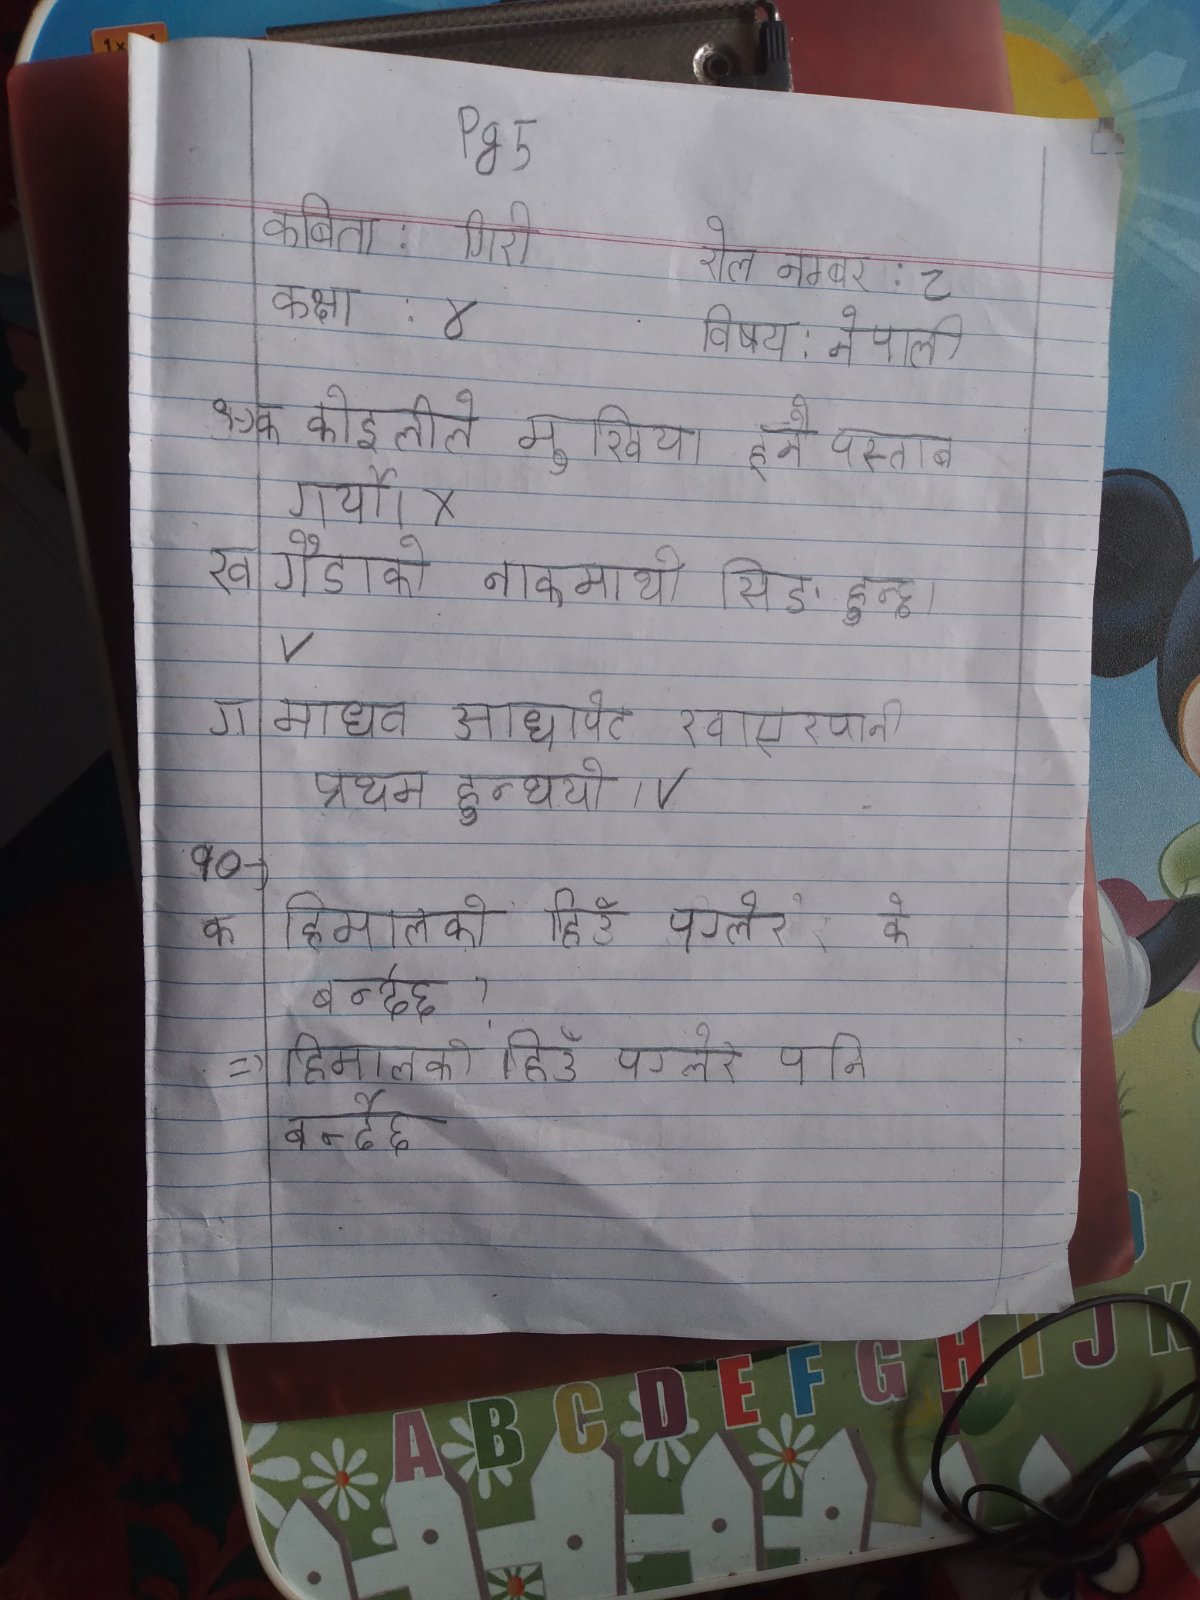 Pg 5
कबिता : गिरी रोल नम्बर : ८
कक्षा : ४ विषय : नेपाली
९) क कोइलीले मुखिया हुने पस्ताब
गर्यो। X
ख गैँडाको नाकमाथी सिङ हुन्छ।
✓
ग माधव आधापेट खाएरपानी
प्रथम हुन्थयो। ✓
१०)
क हिमालको हिउँ पग्लेर के
बन्दैछ ?
=) हिमालको हिउँ पग्लेर पनि
बन्दैछ
A B C D E F G H I J K